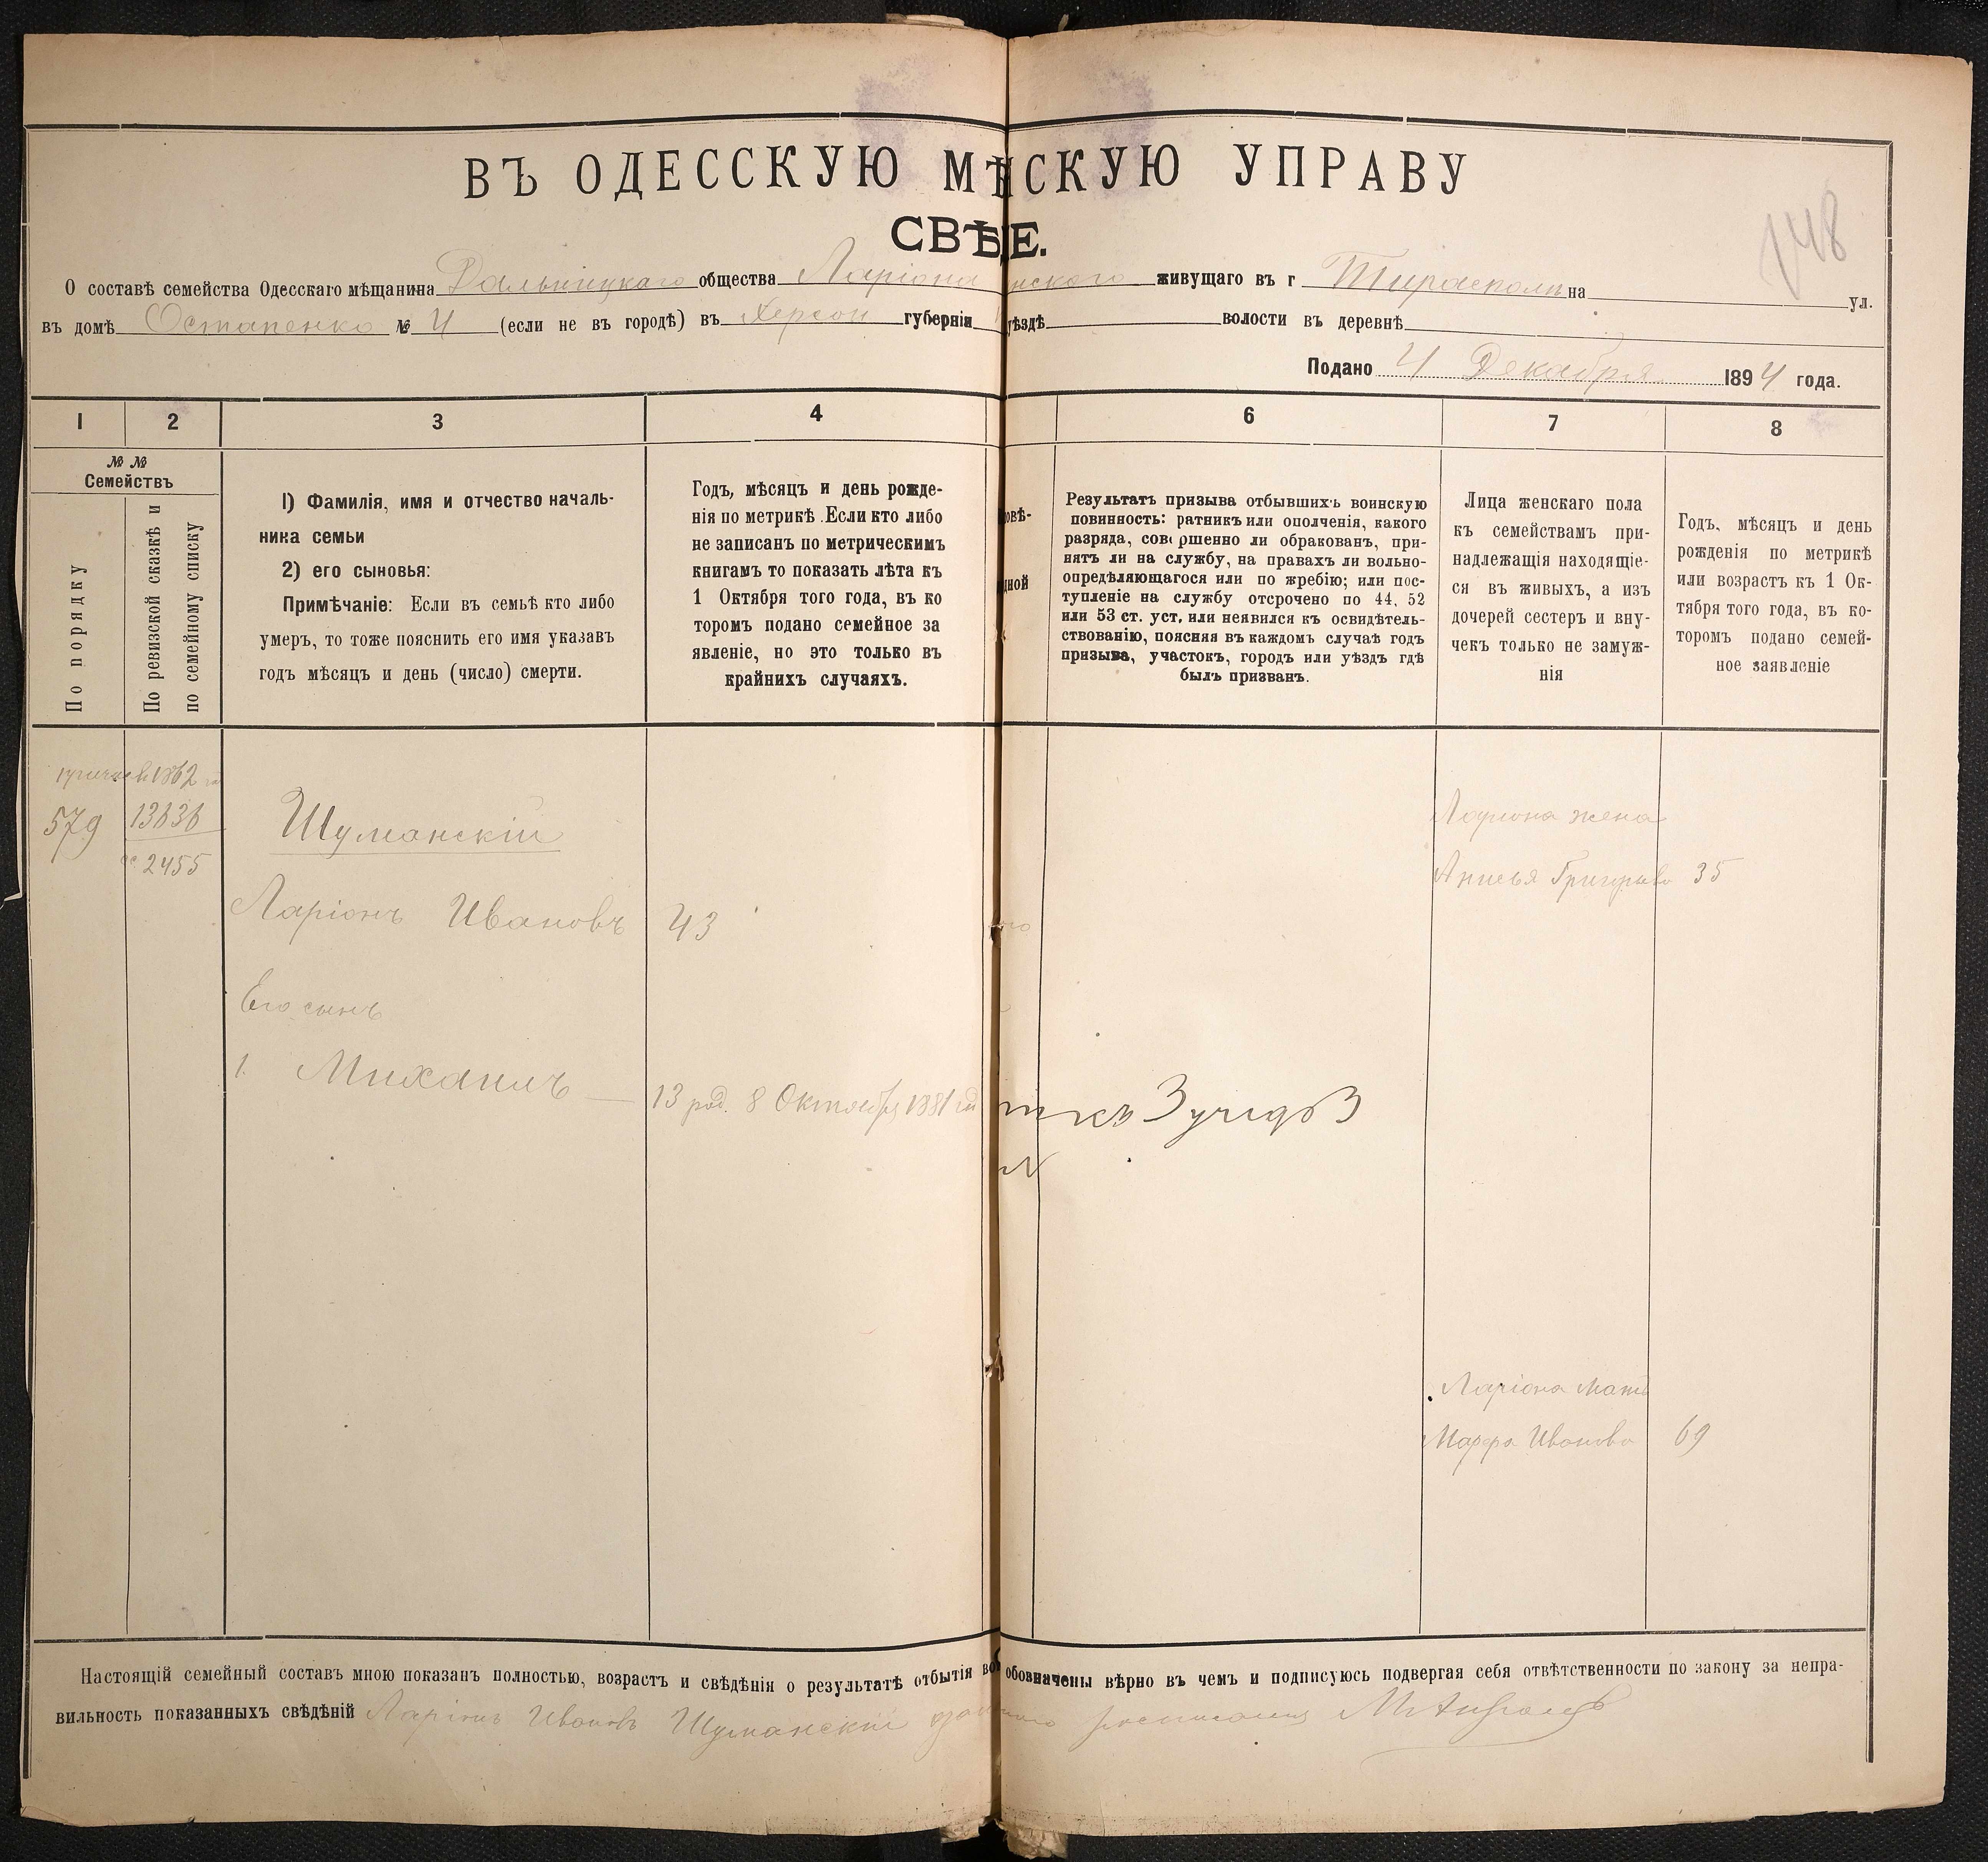 ВЪ ОДЕССКУЮ МѢСКУЮ УПРАВУ
СВѢЕ.
148
О составѣ семейства Одесскаго мѣщанина Дальницкаго общества Ларіона нскаго живущаго въ г Тирасполи на ул.
въ домѣ Остапенко № 4 (если не въ городѣ) въ Херсон губерніи уѣздѣ волости въ деревнѣ
Подано 4 Декабря 1894 года.
1 2 3 4 6 7 8
№ №
Семействъ
По порядку
По ревизской сказкѣ и
по семейному списку
1) Фамилія, имя и отчество началь-
ника семьи
2) его сыновья:
Примѣчаніе: Если въ семьѣ кто либо
умеръ, то тоже пояснить его имя указавъ
годъ мѣсяцъ и день (число) смерти.
Годъ, мѣсяцъ и день рожде-
нія по метрикѣ. Если кто либо
не записанъ по метрическимъ
книгамъ то показать лѣта къ
1 Октября того года, въ ко
торомъ подано семейное за
явленіе, но это только въ
крайнихъ случаяхъ.
овѣ-
дной
Результатъ призыва отбывшихъ воинскую
повинность: ратникъ или ополченія, какого
разряда, совершенно ли обракованъ, при-
нятъ ли на службу, на правахъ ли вольно-
опредѣляющагося или по жребію; или пос-
тупленіе на службу отсрочено по 44, 52
или 53 ст. уст. или неявился къ освидѣтель-
ствованію, поясняя въ каждомъ случаѣ годъ
призыва, участокъ, городъ или уѣздъ гдѣ
былъ призванъ.
Лица женскаго пола
къ семействамъ при-
надлежащія находящіе-
ся въ живыхъ, а изъ
дочерей сестеръ и вну-
чекъ только не замуж-
нія
Годъ, мѣсяцъ и день
рожденія по метрикѣ
или возрастъ къ 1 Ок-
тября того года, въ ко-
торомъ подано семей-
ное заявленіе
1862
579 13636
2455
Шуманскій
Ларіонъ Ивановъ 43
Его сынъ
1. Михаилъ — 13 род. 8 Октября 1881 год
Ларіона жена
Анисья Григорьева 35
Ларіона мать
Марфа Иванова 69
Настоящій семейный составъ мною показанъ полностью, возрастъ и свѣдѣнія о результатѣ отбытія во обозначены вѣрно въ чемъ и подписуюсь подвергая себя отвѣтственности по закону за непра-
вильность показанныхъ свѣдѣній Ларіонъ Ивановъ Шуманскій